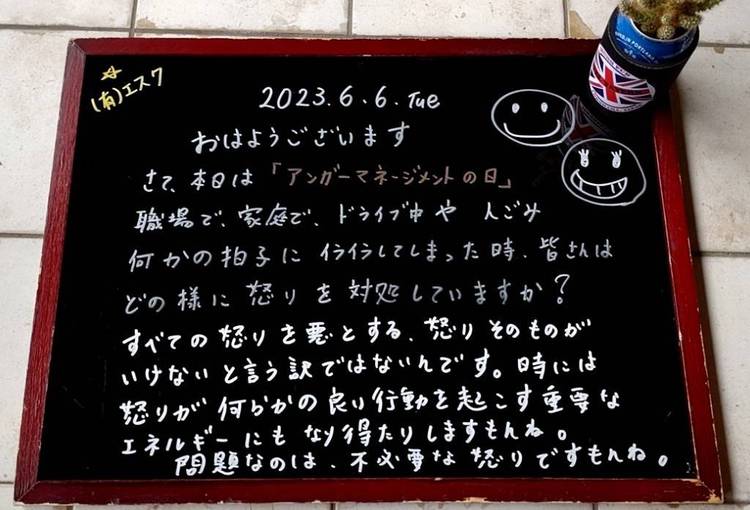 (有)エスク
2023.6.6.Tue
おはようございます
さて、本日は「アンガーマネージメントの日」
職場で、家庭で、ドライブ中や 人ごみ
何かの拍子に イライラしてしまった時、皆さんは
どの様に 怒りを対処していますか?
すべての怒りを悪とする、怒りそのものが
いけないと言う訳ではないんです。時には
怒りが何らかの良い行動を起こす重要な
エネルギーにもなり得たりしますもんね。
問題なのは、不必要な怒りですもんね。